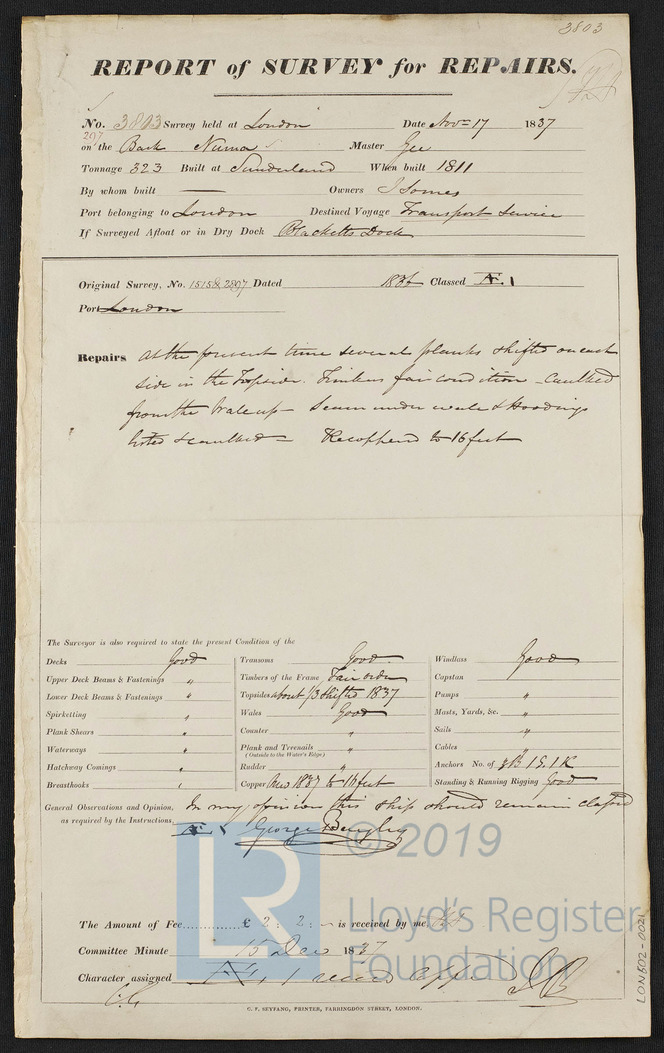 3803
REPORT of SURVEY for REPAIRS.
No. 3803 Survey held at London Date Nov 17 1837
297
on the Bark Numa Master Gee
Tonnage 323 Built at Sunderland When built 1811
By whom built — Owners J Somes
Port belonging to London Destined Voyage Transport Service
If Surveyed Afloat or in Dry Dock Blacketts Dock
Original Survey, No. 1515 & 2297 Dated 1836 Classed Æ. 1
Port London
Repairs At the present time several planks shifted on each
side in the Topside. Timbers fair condition – caulked
from the Wale up – Seam under wale & Hoodings
listed & caulked – Recoppered to 16 feet
The Surveyor is also required to state the present Condition of the
Decks Good
Upper Deck Beams & Fastenings "
Lower Deck Beams & Fastenings "
Spirketting "
Plank Shears "
Waterways "
Hatchway Comings "
Breasthooks "
Transoms Good
Timbers of the Frame Fair order
Topsides about 1/3 shifted 1837
Wales Good
Counter "
Plank and Treenails "
(Outside to the Water's Edge)
Rudder "
Copper New 1837 to 16 feet
Windlass Good
Capstan "
Pumps "
Masts, Yards, &c. "
Sails "
Cables "
Anchors No. of 3B 1S 1K
Standing & Running Rigging Good
General Observations and Opinion, In my opinion this ship should remain classed
as required by the Instructions, Æ 1 George Bayley
© 2019
LR
Lloyd's Register
Foundation
The Amount of Fee £ 2 : 2 : — is received by me,
Committee Minute 15 Dec 1837
Character assigned Æ 1
C. F. SEYFANG, PRINTER, FARRINGDON STREET, LONDON.
LON802-0021